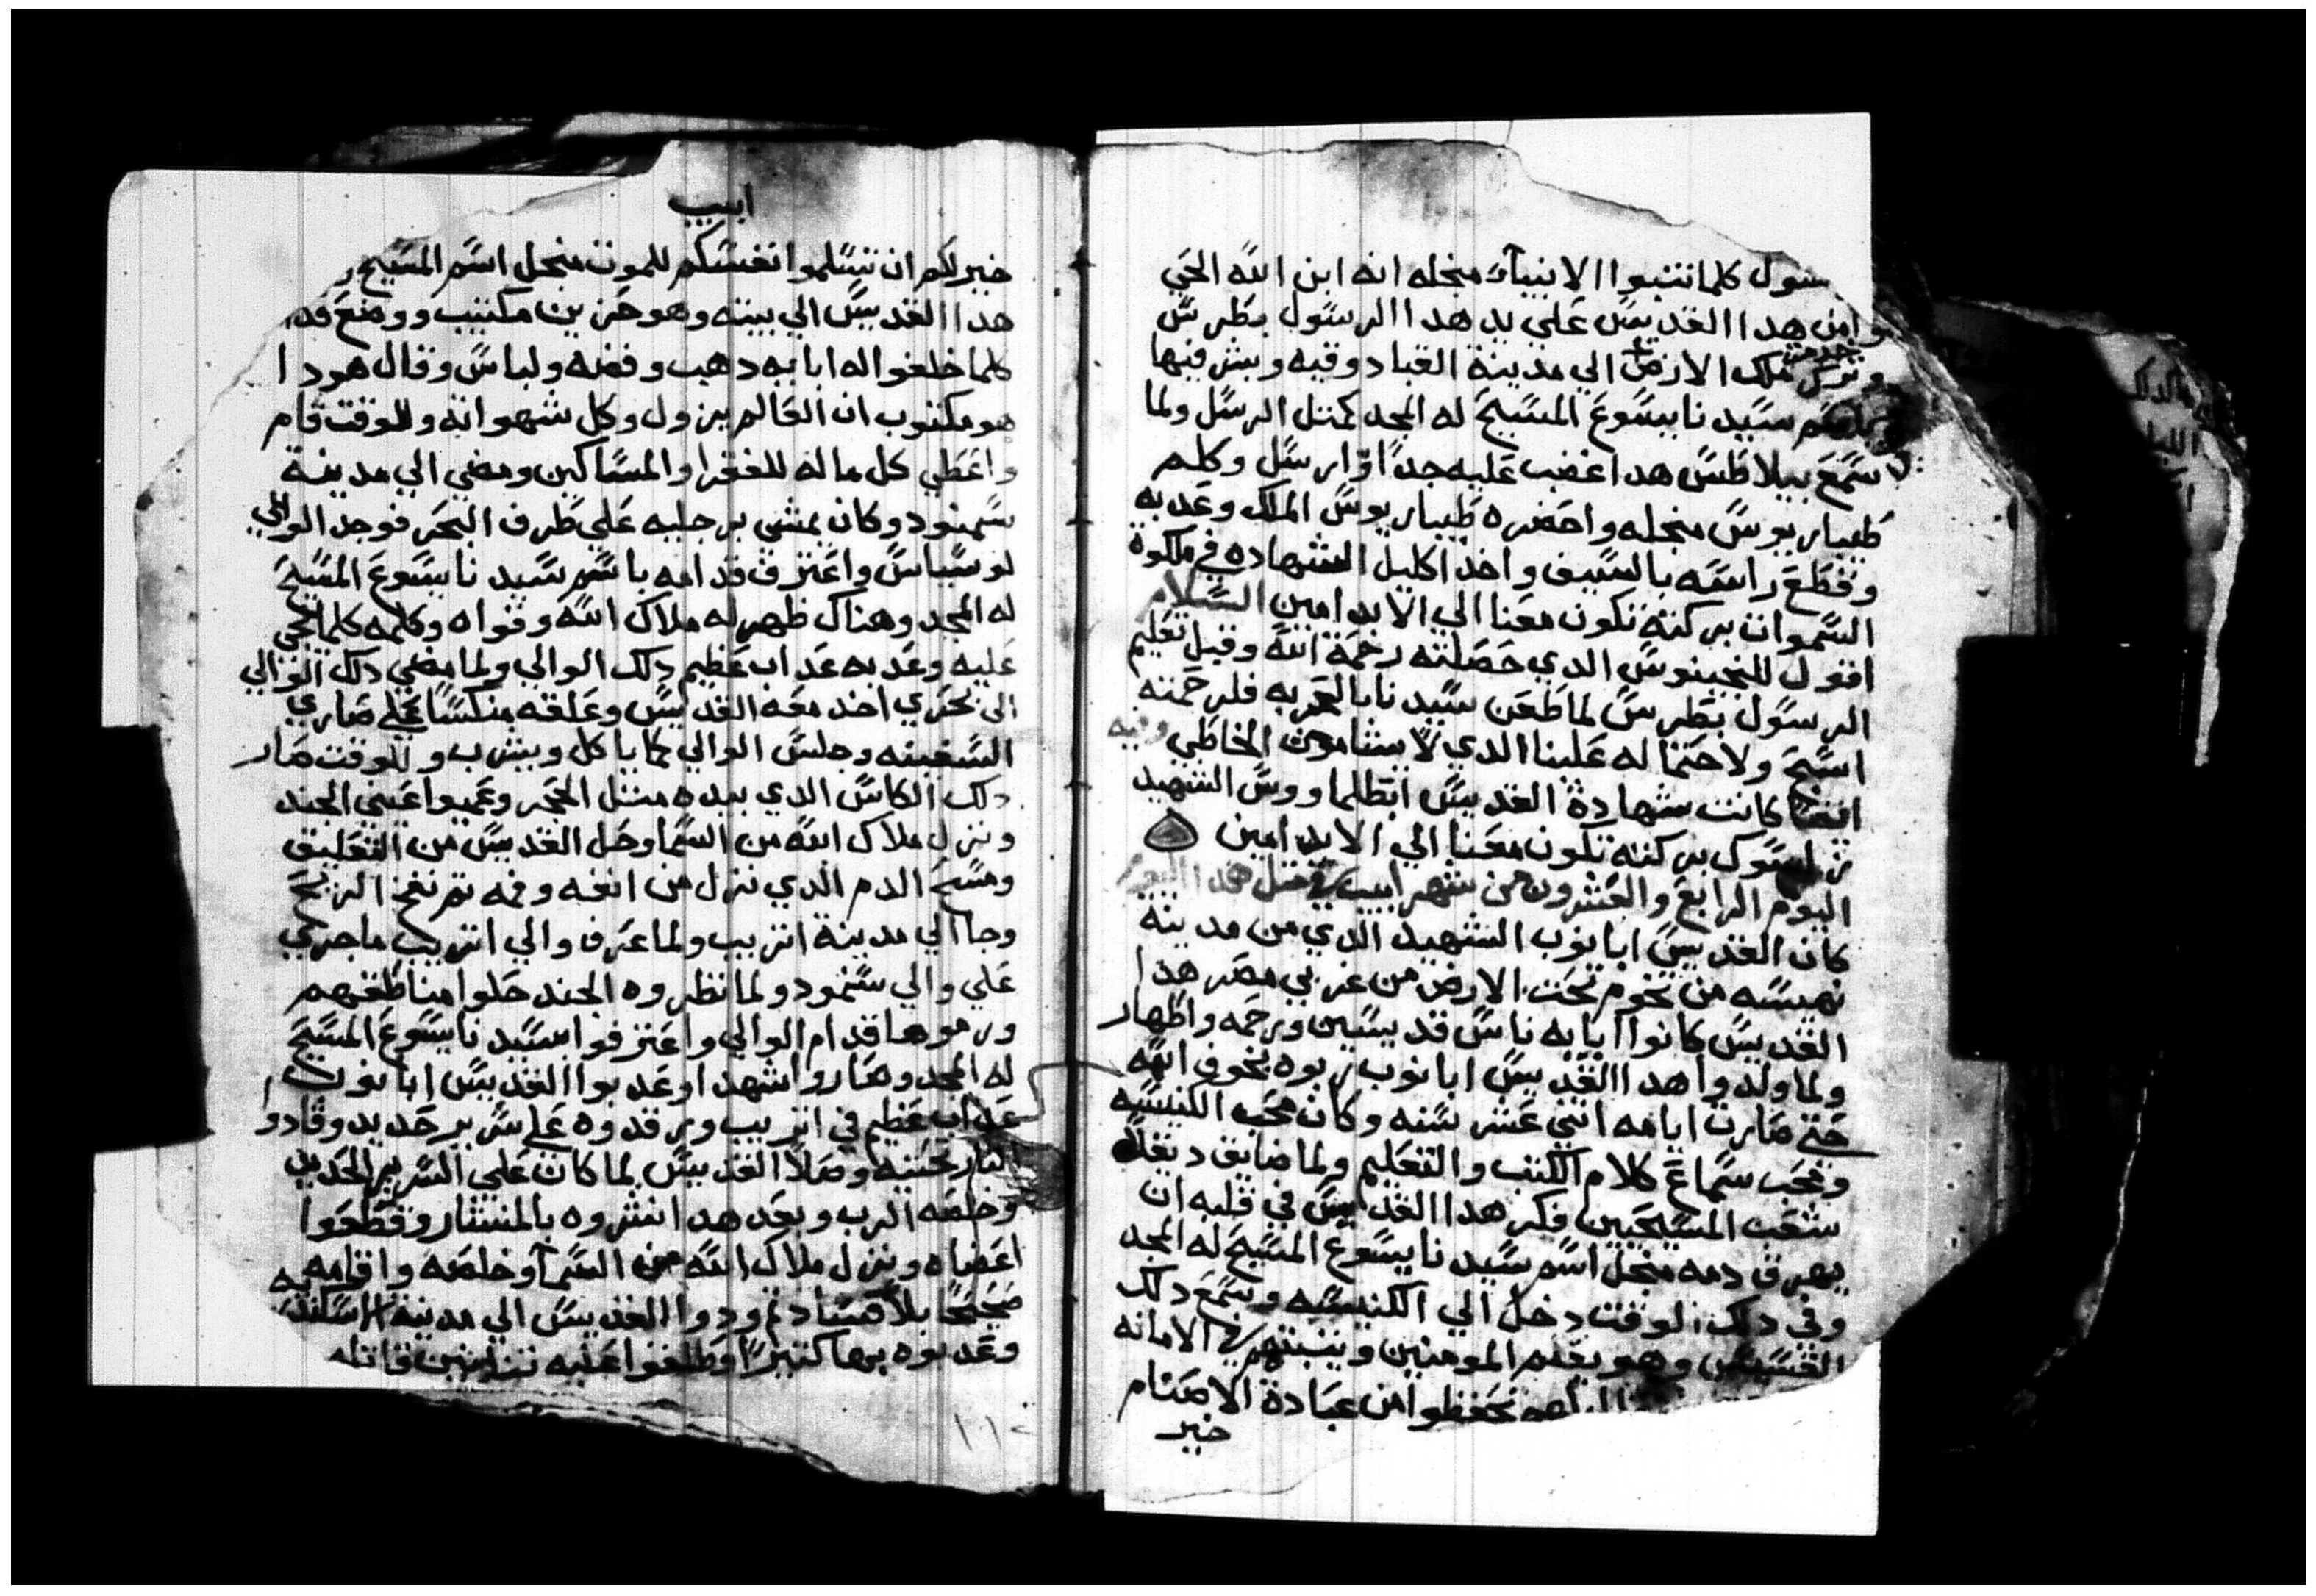 سول كلما تنبوا الانبيآء منجله انه ابن الله الحي
وامن هدا القديس علي يد هدا الرسول بطرس
وترك ملك الارض الي مدينة القبادوقيه وبشر فيها
سيدنا يسوع المسيح له المجد كمتل الرسل ولما
سمع بيلاطس هدا غضب عليه جدًا وارسل وكلم
طيباريوس منجله واحضره طيباريوس الملك وعدبه
وقطع راسه بالسيف واخد اكليل الشهاده في ملكوة
السموات بركته تكون معنا الي الابد امين السلام
اقول للنجينوس الدي حصلته رحمة الله وقبل تعليم
الرسول بطرس لما طعن سيدنا بالحربه فلرحمته
اسبح ولاحتماله علينا الدي لا يشا موت الخاطي وفيه
ايضا كانت شهادة القديس ابطلماووس الشهيد
بركته تكون معنا الي الابد امين
اليوم الرابع والعشرون من شهر ابيب في متل هدا اليوم
كان القديس ابانوب الشهيد الدي من مدينة
نهيسه من تخوم تحت الارض من غربي مصر هدا
القديس كانوا ابايه ناس قديسين ورحمه واطهار
ولما ولدوا هدا القديس ابانوب ربوه بخوف الله
حتي صارت ايامه اتني عشر سنه وكان محب الكنيسه
ومحب سماع كلام الكتب والتعليم ولما ضايق
شعب المسيحيين فكر هدا القديس في قلبه ان
يهرق دمه منجل اسم سيدنا يسوع المسيح له المجد
وفي دلك الوقت دخل الي الكنيسه وسمع دلك
القسيس وهو يعلم المومنين ويتبتهم في الامانه
يحفظوا من عبادة الاصنام
خير
ابيب
خير لكم ان تسلموا انفسكم للموت منجل اسم المسيح
هدا القديس الي بيته وهو حزين مكتيب ووضع
كلما خلفوا له ابايه دهب وفضه ولباس وقال هودا
هو مكتوب ان العالم يزول وكل شهواته وللوقت قام
واعطي كل ماله للفقرا والمساكين ومضي الي مدينة
سمنود وكان يمشي برجليه علي طرف البحر فوجد الوالي
لوسياس واعترف قدامه باسم سيدنا يسوع المسيح
له المجد وهناك ظهر له ملاك الله وقواه وكلمه كلما يجي
عليه وعدبه عداب عظيم دلك الوالي ولما مضي دلك الوالي
الي بحري اخد معه القديس وعلقه منكسًا علي صاري
السفينه وجلس الوالي كما ياكل ويشرب وللوقت صار
دلك الكاس الدي بيده متل الحجر وعميوا عيني الجند
ونزل ملاك الله من السما وحل القديس من التعليق
ومسح الدم الدي نزل من انفه وفمه تم نفخ الريح
وجا الي مدينة اتريب ولما عرف والي اتريب ما جري
علي والي سمنود ولما نظروه الجند حلوا مناطقهم
ورموها قدام الوالي واعترفوا بسيدنا يسوع المسيح
له المجد وصاروا شهدا وعدبوا القديس ابانوب
عداب عظيم في اتريب ورقدوه علي سرير حديد وقادو
النار تحته وصلا القديس لما كان علي السرير الحديد
وخلصه الرب وبعد هدا نشروه بالمنشار وقطعوا
اعضاه ونزل ملاك الله من السمآ وخلصه واقامه
صحيحًا بلا فساد تم ودوا القديس الي مدينة اسكندريه
وعدبوه بها كتيرًا وطلقوا عليه تنانين قاتله